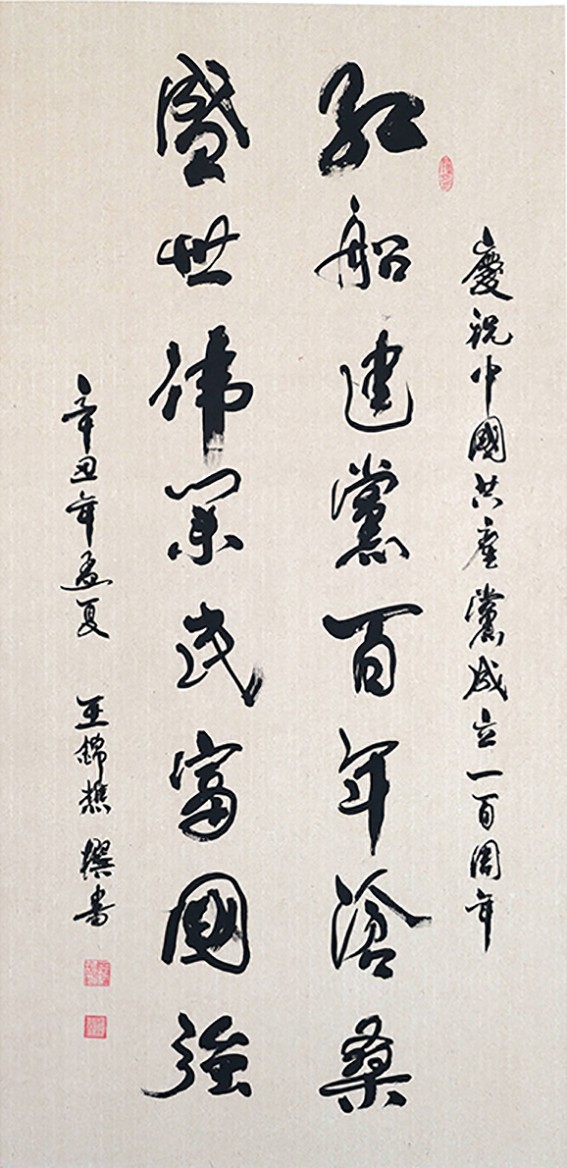 慶祝中國共產黨成立一百周年
紅船建黨百年滄桑
盛世偉業民富國強
辛丑年孟夏 王錦樵 撰書